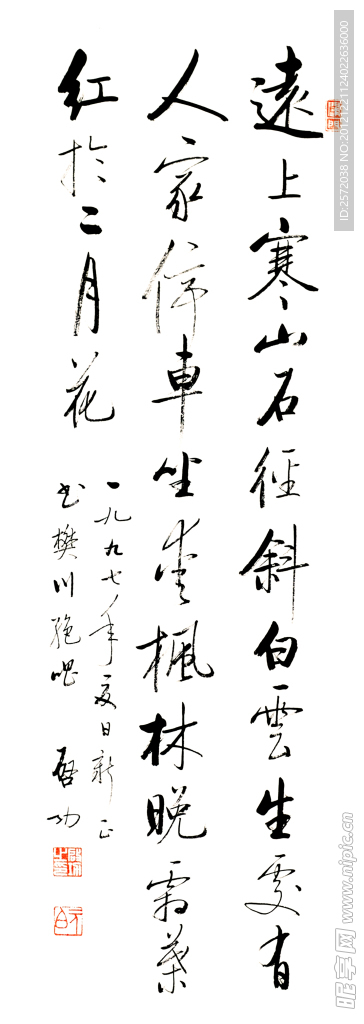 遠上寒山石徑斜白雲生處有
人家停車坐愛楓林晚霜葉
紅於二月花
一九九七年夏日新正
書樊川絶唱 啓功
ID:2572038 NO:20121221124022636000
昵享网 www.nipic.cn